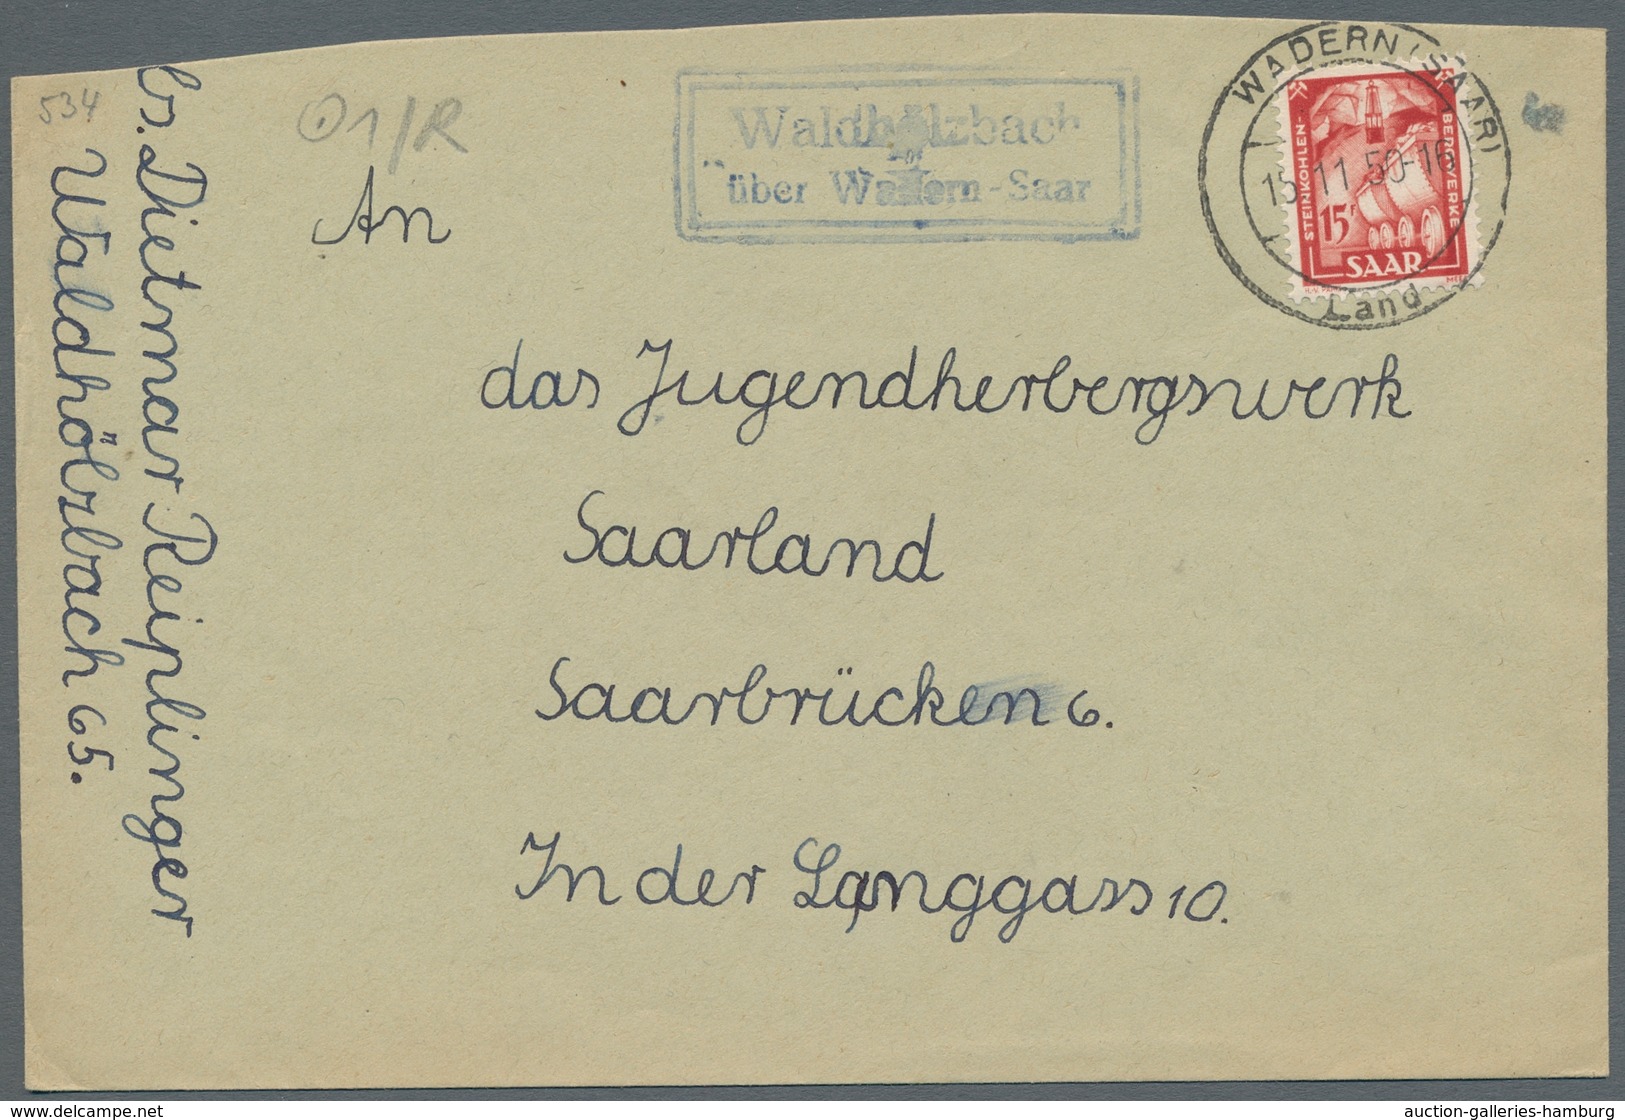 534
O1/R
Waldhölzbach
über Wadern-Saar
WADERN (SAAR)
15.11.50-16
Land
STEINKOHLEN-
BERGWERKE
15F
SAAR
An
das Jugendherbergswerk
Saarland
Saarbrücken 6.
In der Langgass 10.
bs. Dietmar Reiplinger
Waldhölzbach 65.
auction-galleries-hamburg